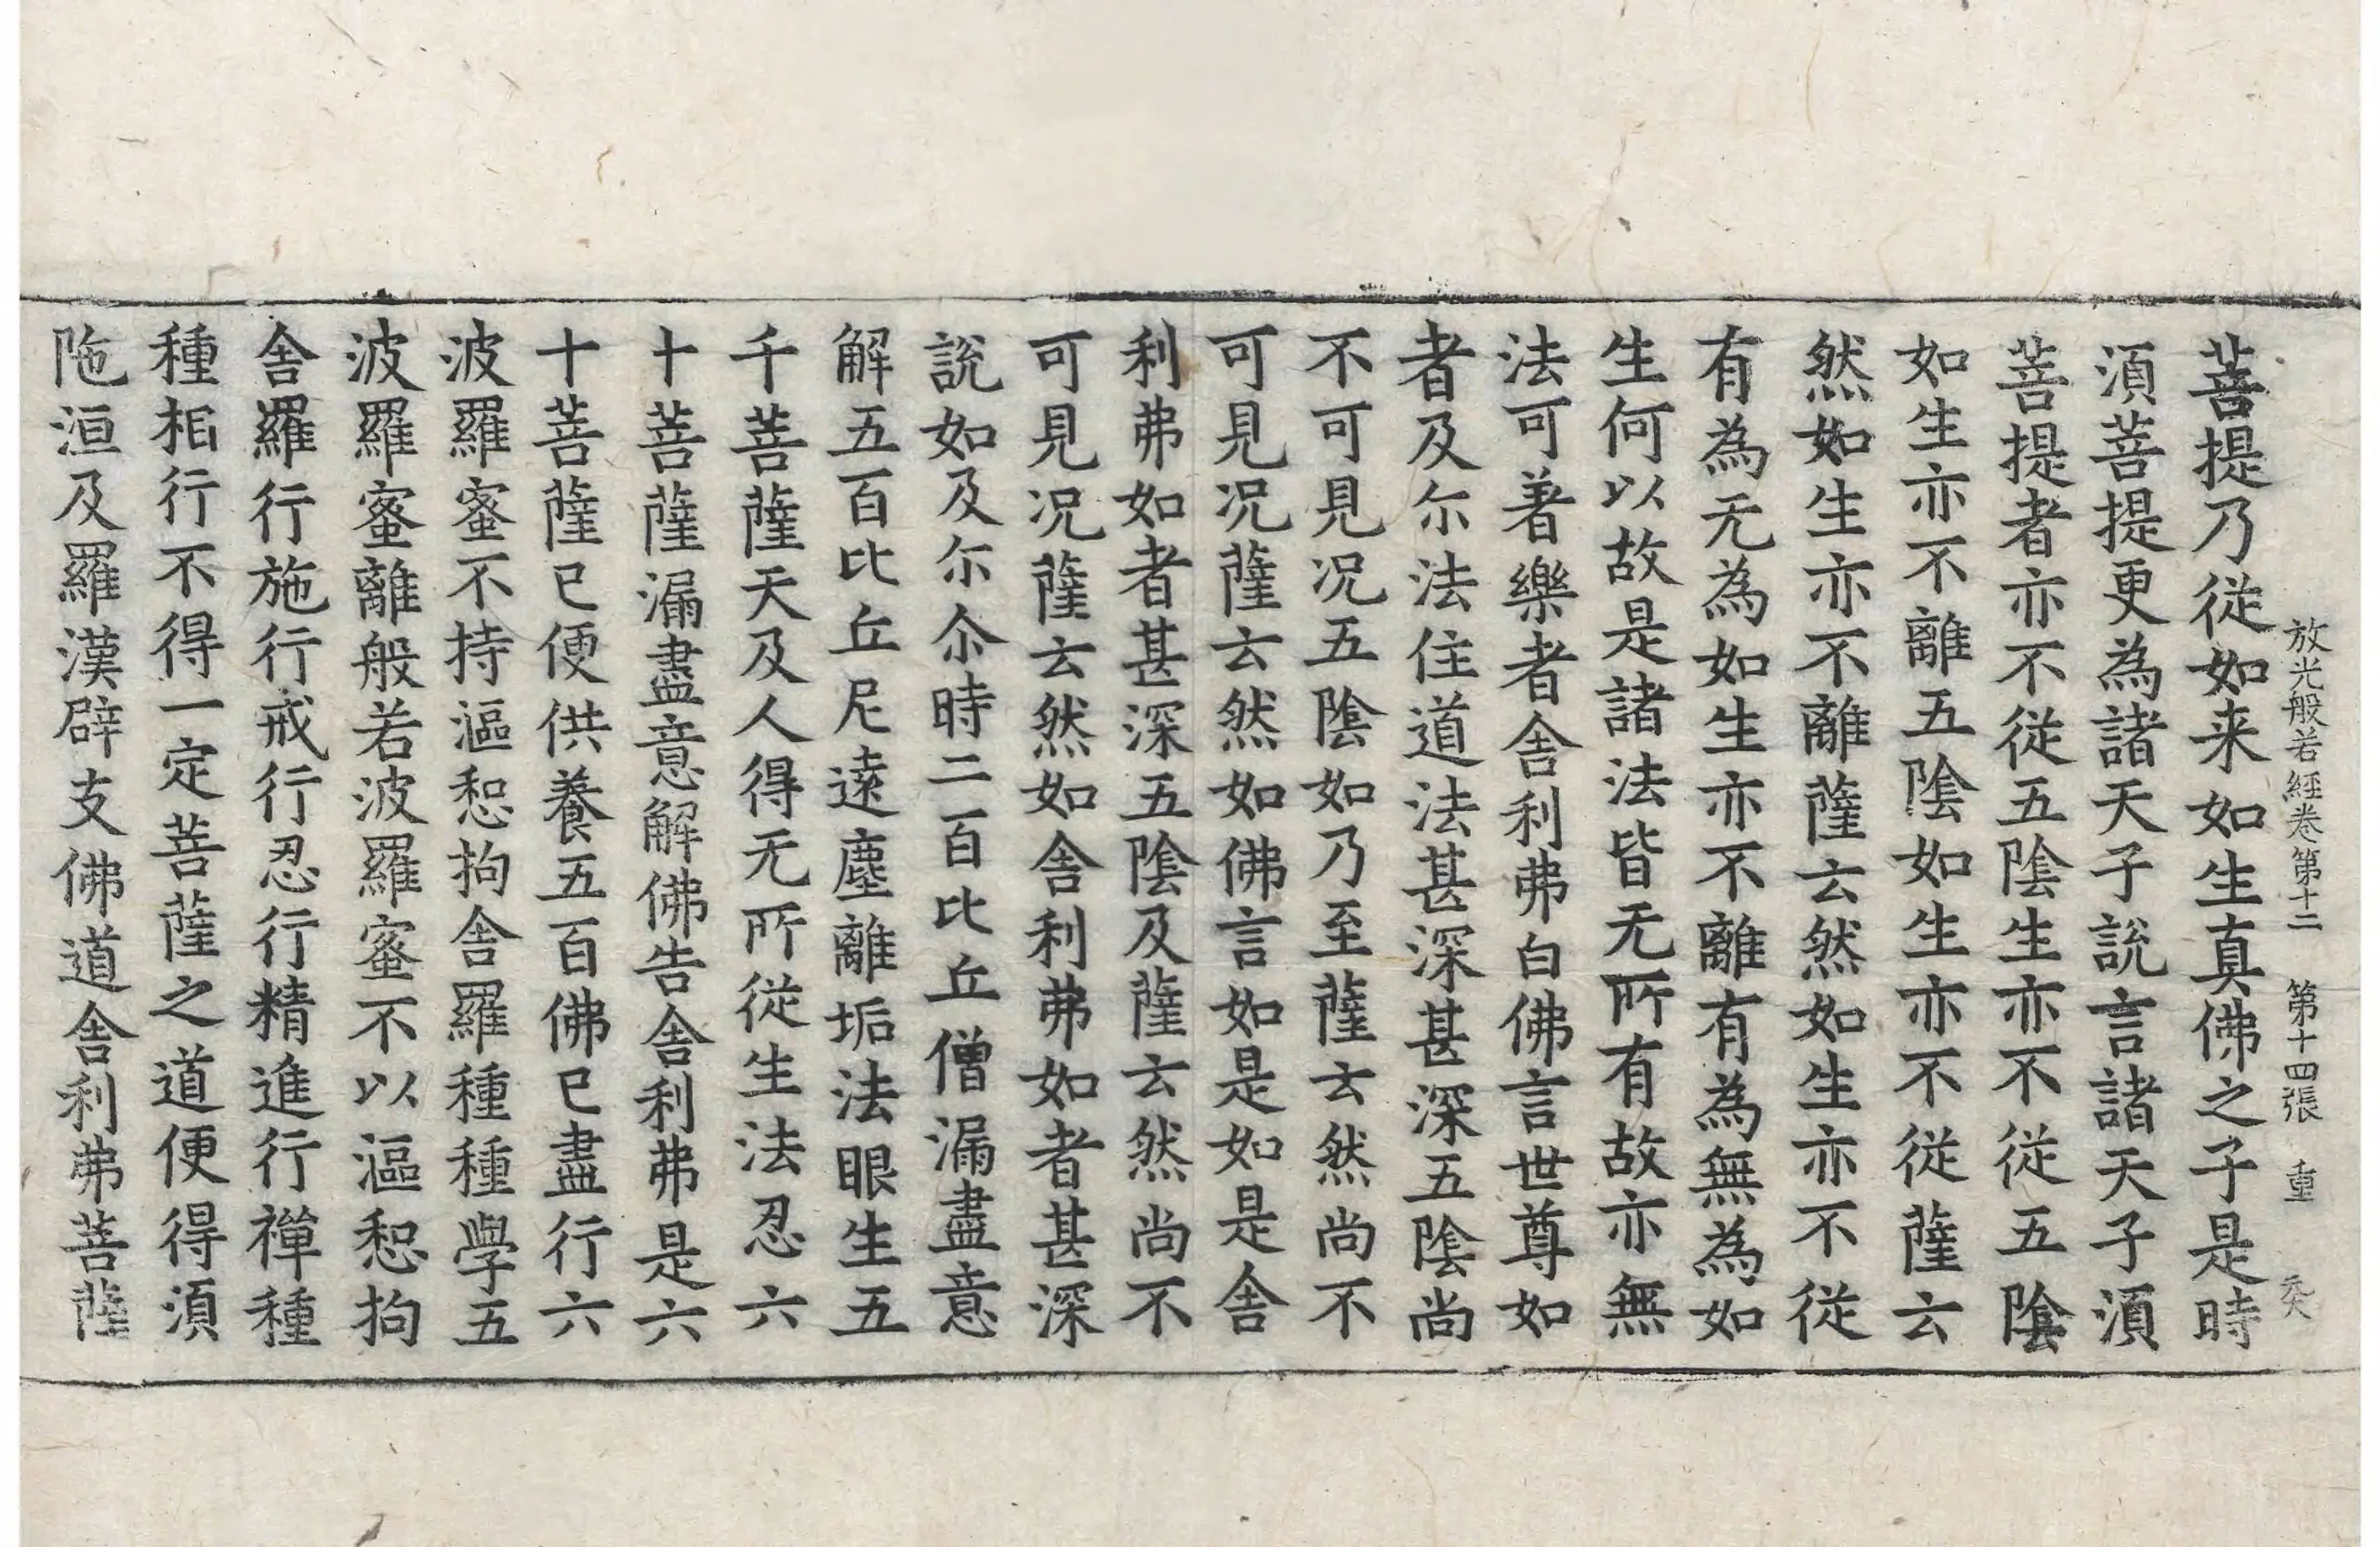 放光般若經卷第十二　第十四張　重
菩提乃從如来如生真佛之子是時
湏菩提更為諸天子說言諸天子湏
菩提者亦不從五陰生亦不從五陰
如生亦不離五陰如生亦不從薩云
然如生亦不離薩云然如生亦不從
有為无為如生亦不離有為無為如
生何以故是諸法皆无所有故亦無
法可著樂者舍利弗白佛言世尊如
者及尓法住道法甚深甚深五陰尚
不可見况五陰如乃至薩云然尚不
可見况薩云然如佛言如是如是舍
利弗如者甚深五陰及薩云然尚不
可見况薩云然如舍利弗如者甚深
說如及尓尒時二百比丘僧漏盡意
解五百比丘尼遠塵離垢法眼生五
千菩薩天及人得无所從生法忍六
十菩薩漏盡意解佛告舍利弗是六
十菩薩已便供養五百佛已盡行六
波羅蜜不持漚惒拘舍羅種種學五
波羅蜜離般若波羅蜜不以漚惒拘
舍羅行施行戒行忍行精進行禪種
種相行不得一定菩薩之道便得湏
陁洹及羅漢辟支佛道舍利弗菩薩